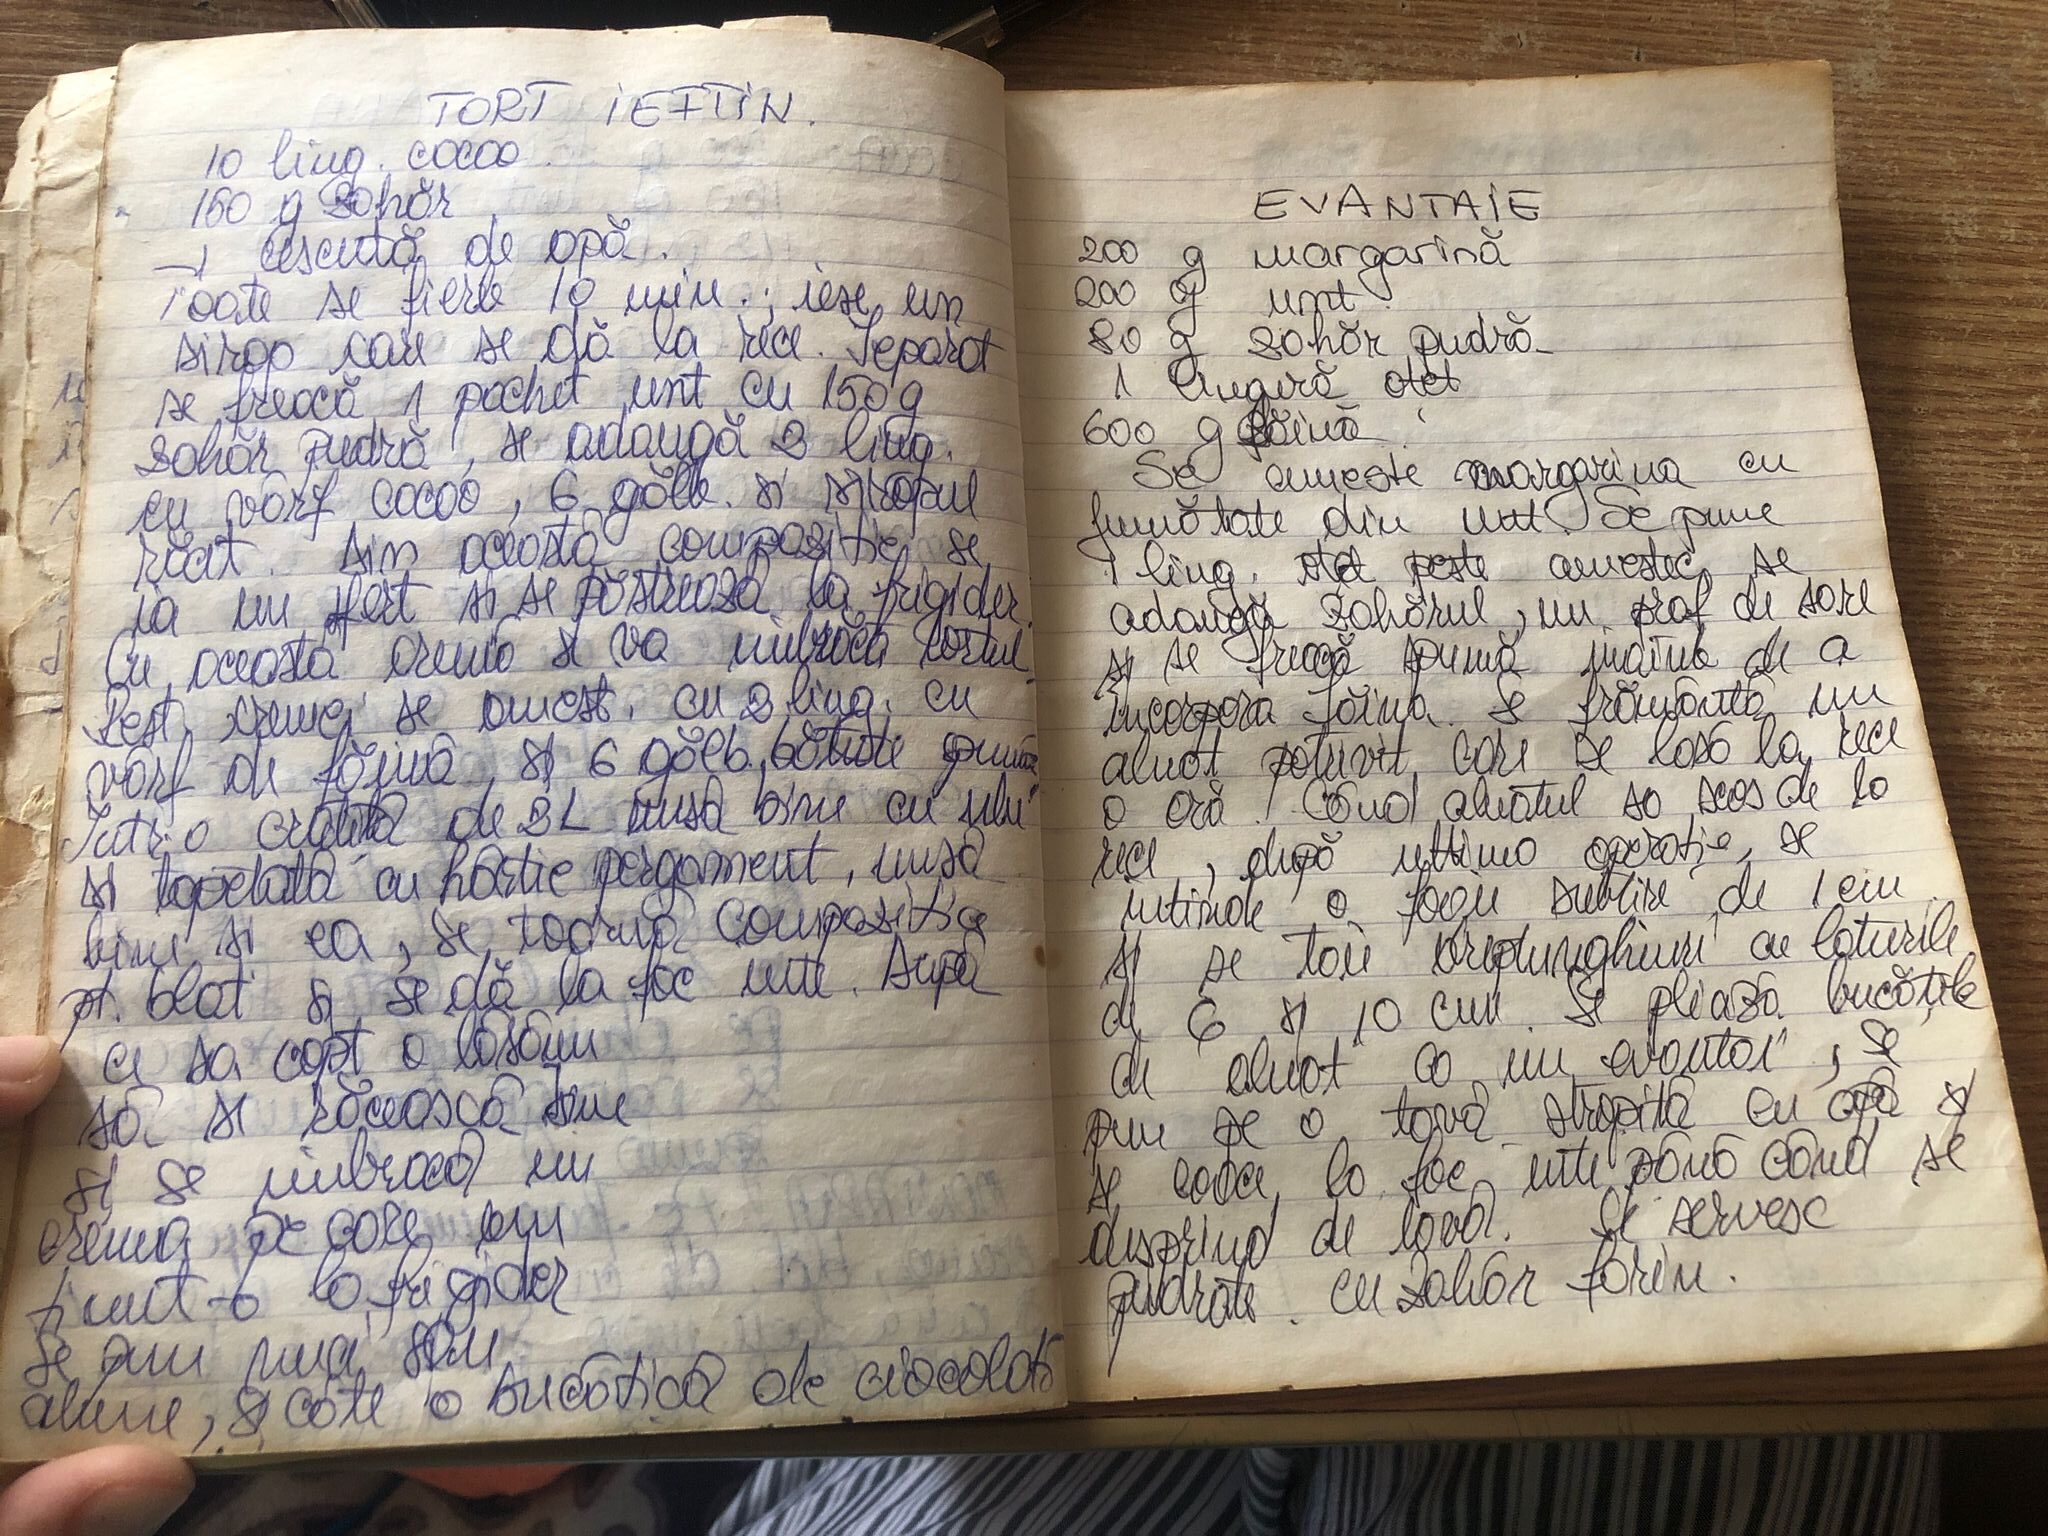 TORT IEFTIN.
10 ling. cacao
150 g zahăr
1 cescută de apă.
Toate se fierb 10 min.; iese un
sirop care se dă la rece. Separat
se freacă 1 pachet unt cu 150 g
zahăr pudră, se adaugă 2 ling.
cu vârf cacao, 6 gălb. si siropul
răcit. Din aceasta compozitie se
ia un sfert si se păstrează la frigider.
Cu aceasta crema se va îmbrăca tortul
Rest cremei se amest. cu 2 ling. cu
vârf de făină, si 6 gălb. bătute spumă
Intr-o cratită de 2L unsă bine cu ulei
si tapetată cu hârtie pergament, unsă
bine si ea, se toarnă compozitia
pt. blat si se dă la foc iute. După
ce sa copt o lăsăm
să se răcească bine
si se îmbracă in
crema pe care am
tinut-o la frigider
Se pun nuci sau
alune, si câte o bucătică de ciocolată
EVANTAIE
200 g margarină
200 g unt
80 g zahăr pudră
1 lingură otet
600 g făină
Se ameste margarina cu
jumătate din unt. Se pune
1 ling. otet peste amestec, se
adaugă zahărul, un praf de sare
si se freacă spumă înainte de a
incorpora făina. Se frământă un
aluat potrivit care se lasă la rece
o oră. Când aluatul sa scos de la
rece, după ultima operatie, se
intinde o foaie subtire de 1 cm
si se taie dreptunghiuri cu laturile
de 6 si 10 cm. Se pliază bucătile
de aluat ca un evantai", se
pun pe o tavă stropită cu apă si
se coace la foc iute până când se
desprind de tavă. Se servesc
pudrate. cu zahăr farin.